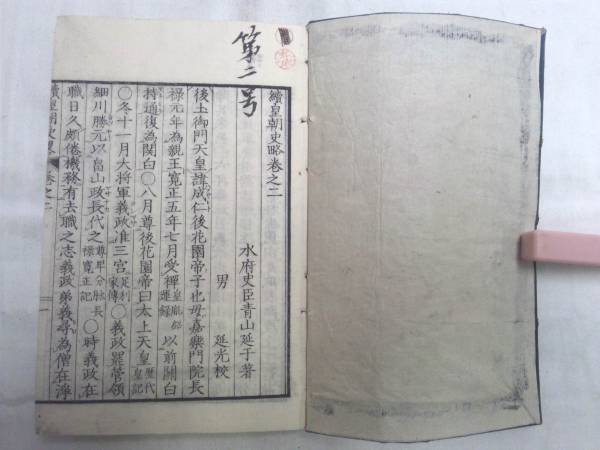 第二号
續皇朝史略卷之二
水府史臣青山延于著
男 延光校
後土御門天皇諱成仁後花園帝子也母嘉樂門院長
禄元年為親王寛正五年七月受禪皇胤紹運録以前關白
持通復為関白〇八月尊後花園帝曰太上天皇歴代皇記
〇冬十一月大將軍義政准三宮足利家傳〇義政罷管領
細川勝元以畠山政長代之尊卑分脉長禄寛正記〇時義政在
職日久頗倦機務有去職之志義政弟義尋為僧在淨
續皇朝史畧 卷之二 一